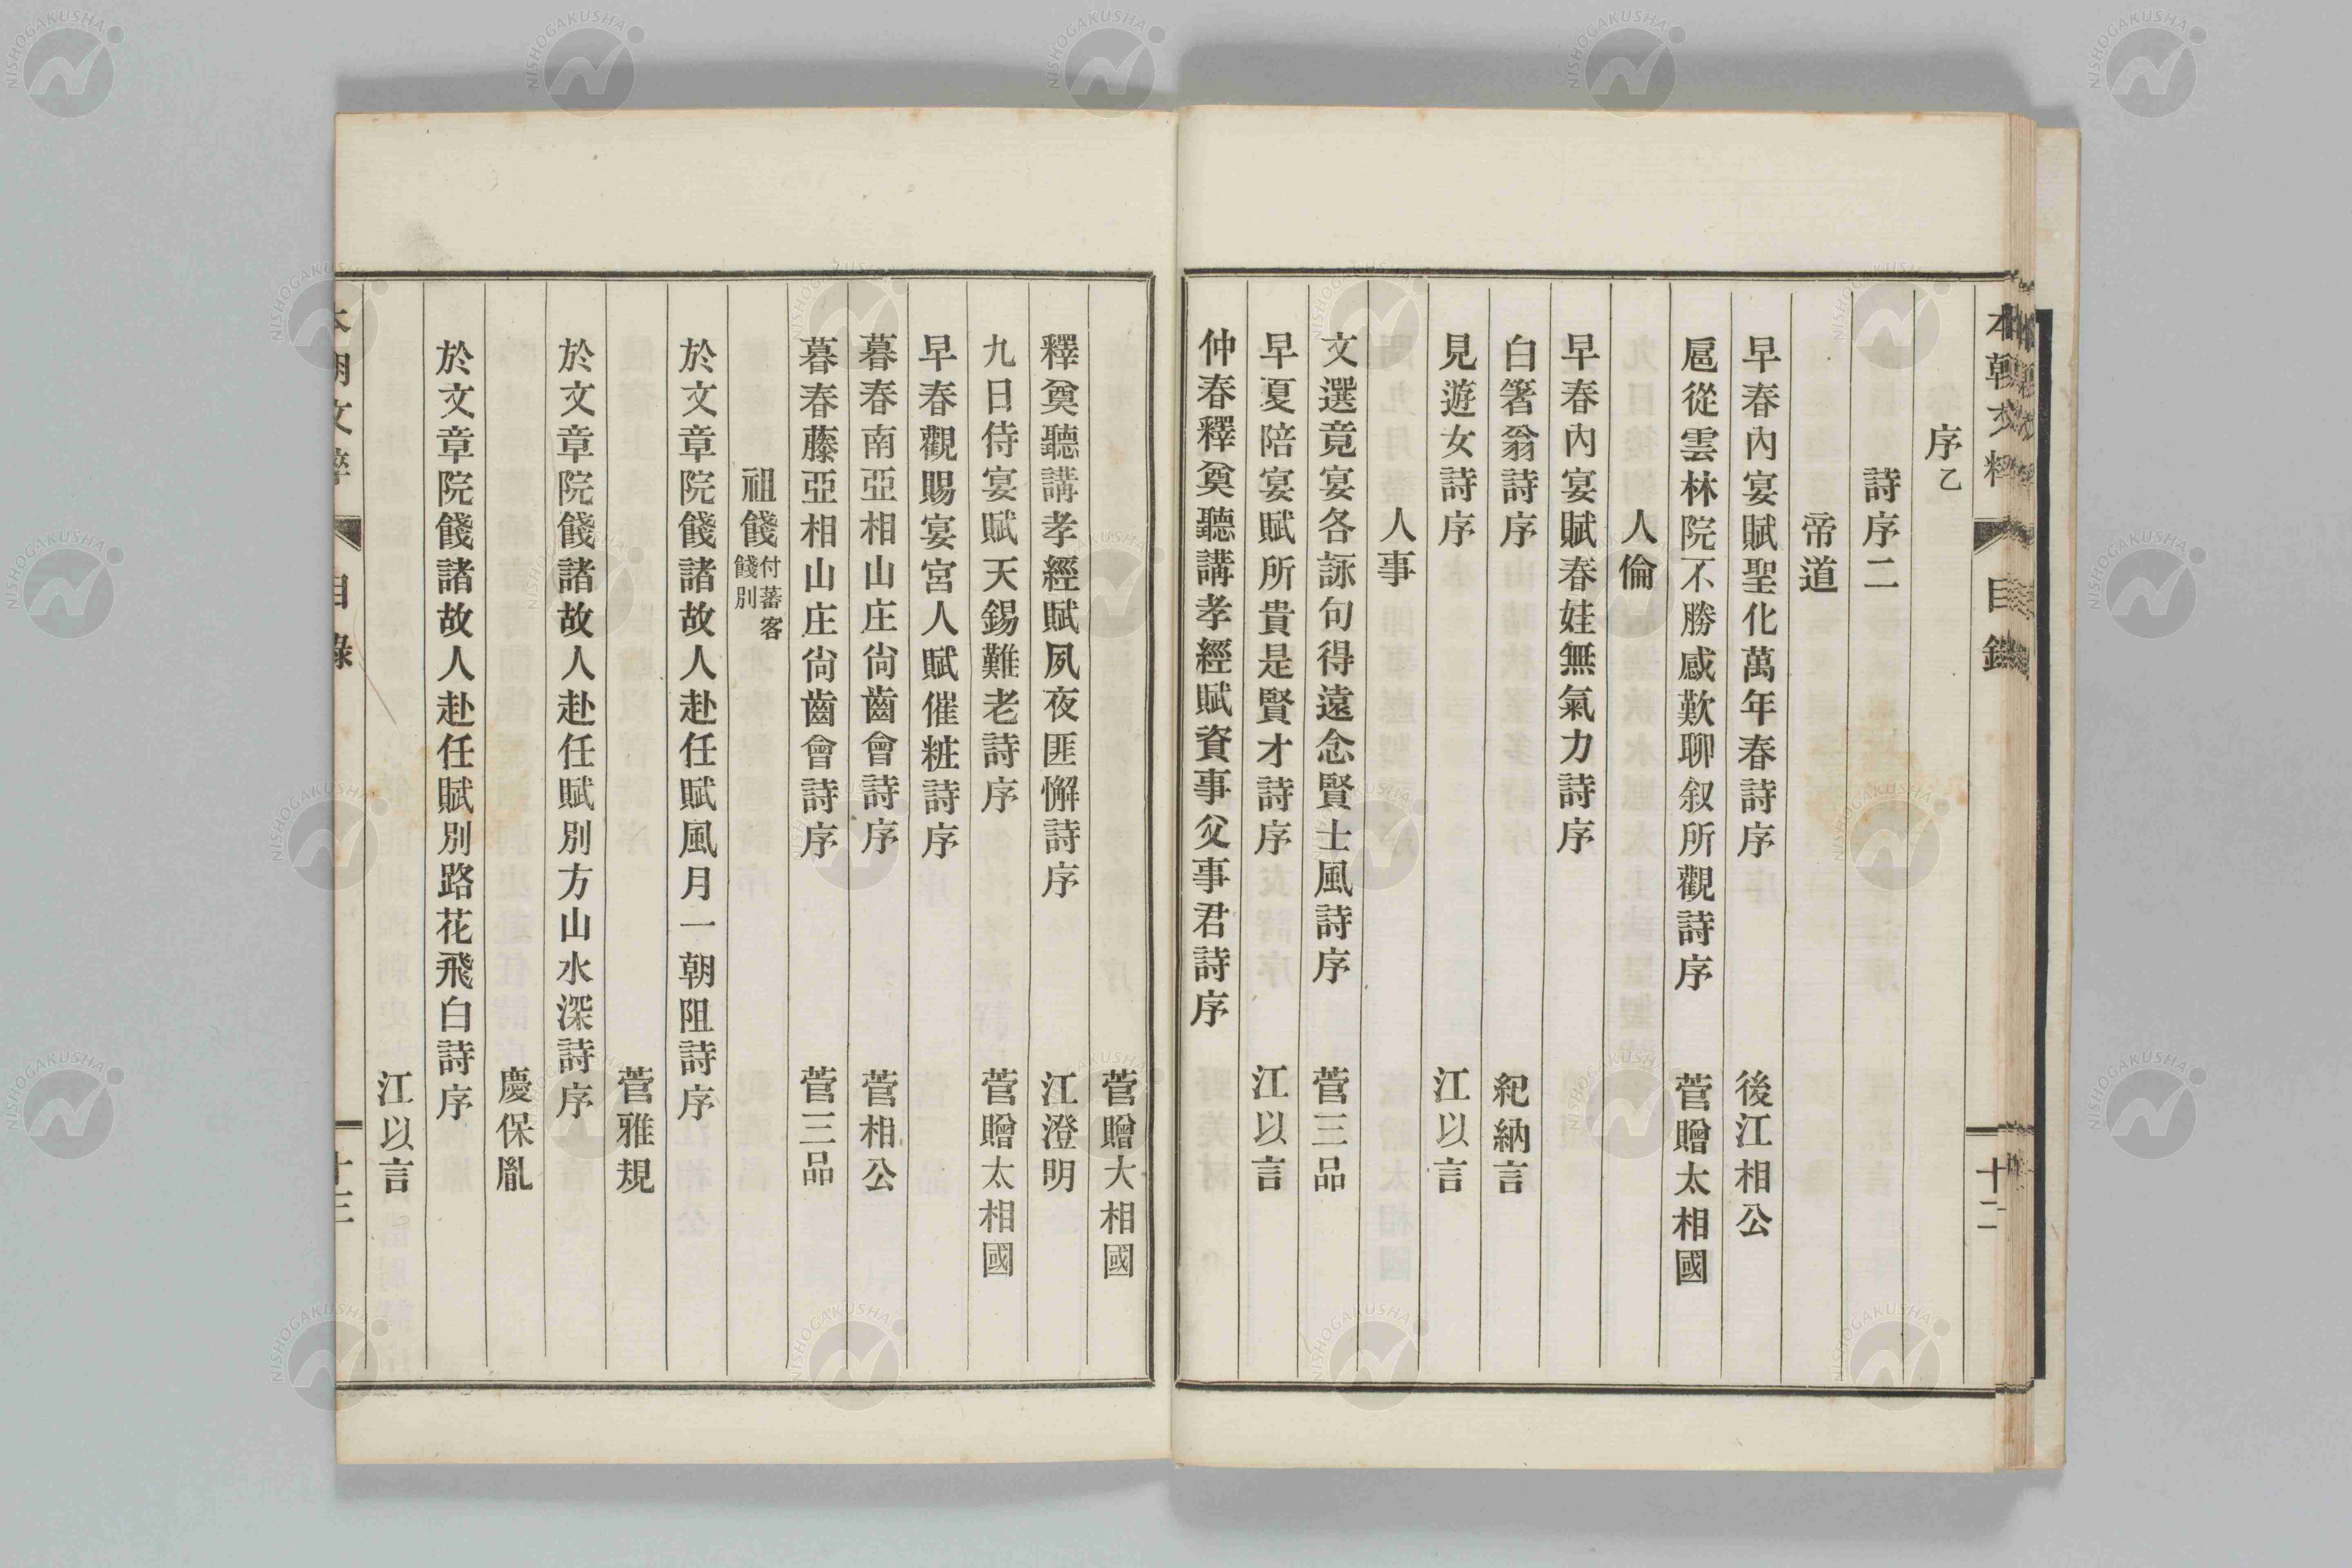 序乙
詩序二
帝道
早春內宴賦聖化萬年春詩序 後江相公
扈從雲林院不勝感歎聊叙所觀詩序 菅贈太相國
人倫
早春內宴賦春娃無氣力詩序
白箸翁詩序 紀納言
見遊女詩序 江以言
人事
文選竟宴各詠句得遠念賢士風詩序 菅三品
早夏陪宴賦所貴是賢才詩序 江以言
仲春釋奠聽講孝經賦資事父事君詩序
目錄
十二
菅贈大相國
釋奠聽講孝經賦夙夜匪懈詩序 江澄明
九日侍宴賦天錫難老詩序 菅贈太相國
早春觀賜宴宮人賦催粧詩序
暮春南亞相山庄尙齒會詩序 菅相公
暮春藤亞相山庄尙齒會詩序 菅三品
祖餞付蕃客餞別
於文章院餞諸故人赴任賦風月一朝阻詩序
菅雅規
於文章院餞諸故人赴任賦別方山水深詩序
慶保胤
於文章院餞諸故人赴任賦別路花飛白詩序
江以言
NISHOGAKUSHA